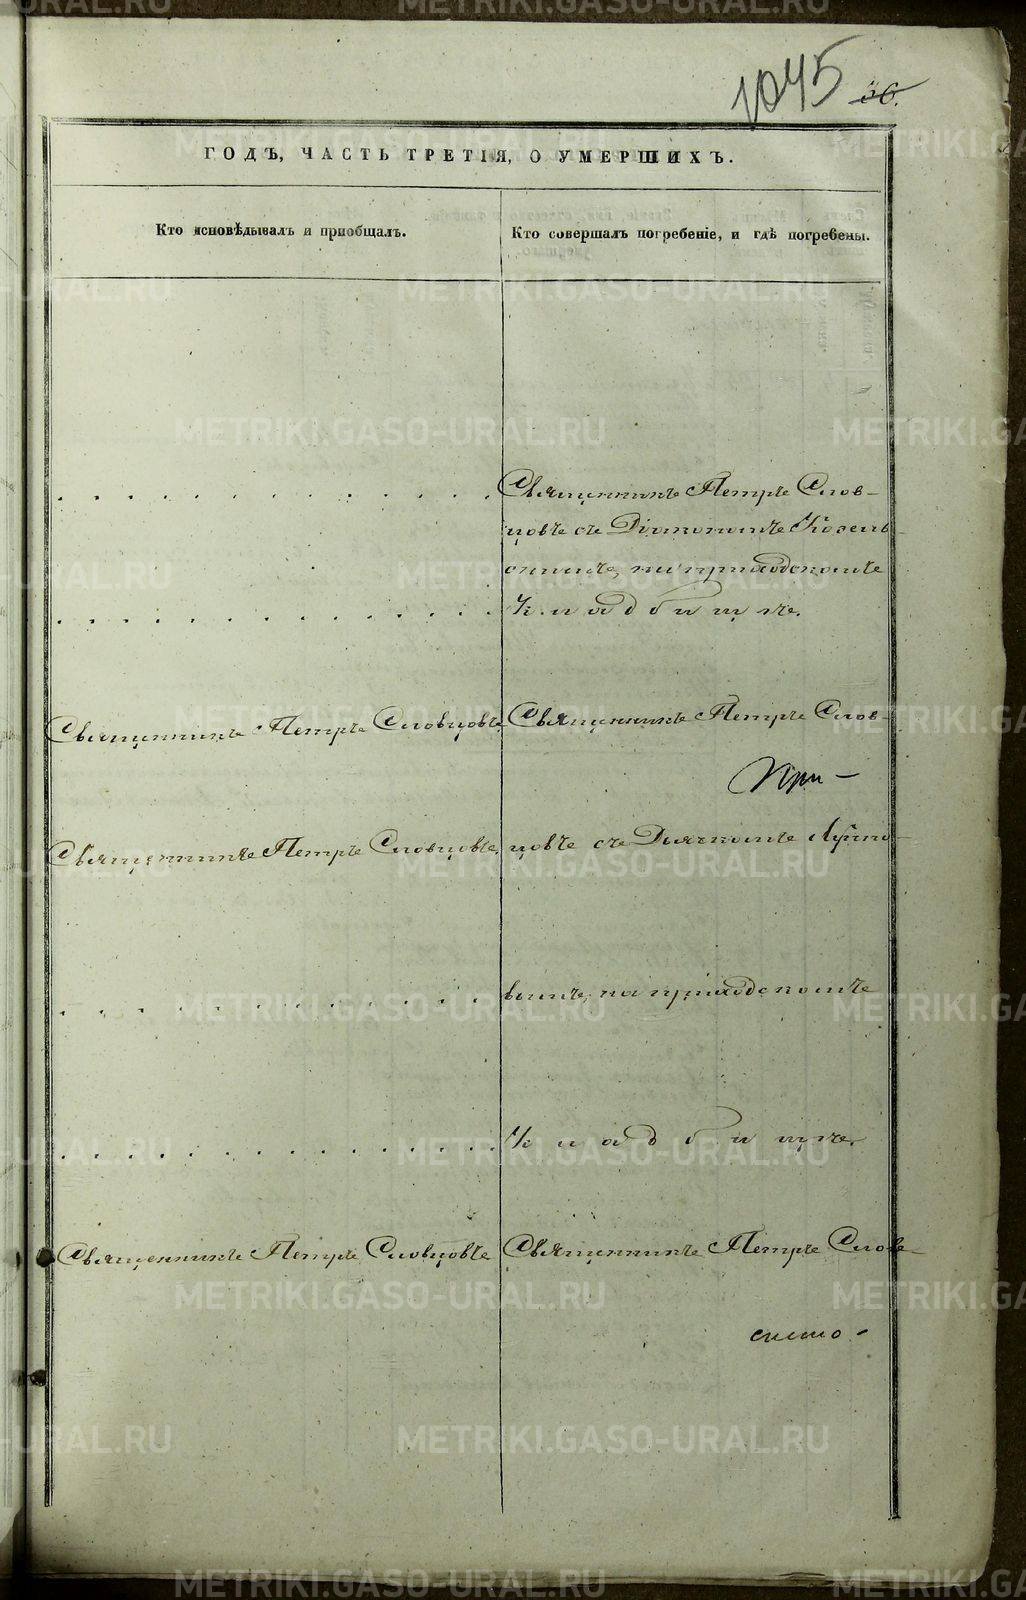 1045 56.
ГОДЪ, ЧАСТЬ ТРЕТІЯ, О УМЕРШИХЪ.
Кто исповѣдывалъ и приобщалъ.
Кто совершалъ погребеніе, и гдѣ погребены.
Священникъ Петръ Слов-
цовъ съ Діакономъ Козель-
скимъ, на приходскомъ
кладбищѣ.
Священникъ Петръ Словцовъ
Священникъ Петръ Слов-
При-
Священникъ Петръ Словцовъ,
цовъ съ Дьячкомъ
вымъ, на приходскомъ
кладбищѣ.
Священникъ Петръ Словцовъ
Священникъ Петръ Слов-
METRIKI.GASO-URAL.RU